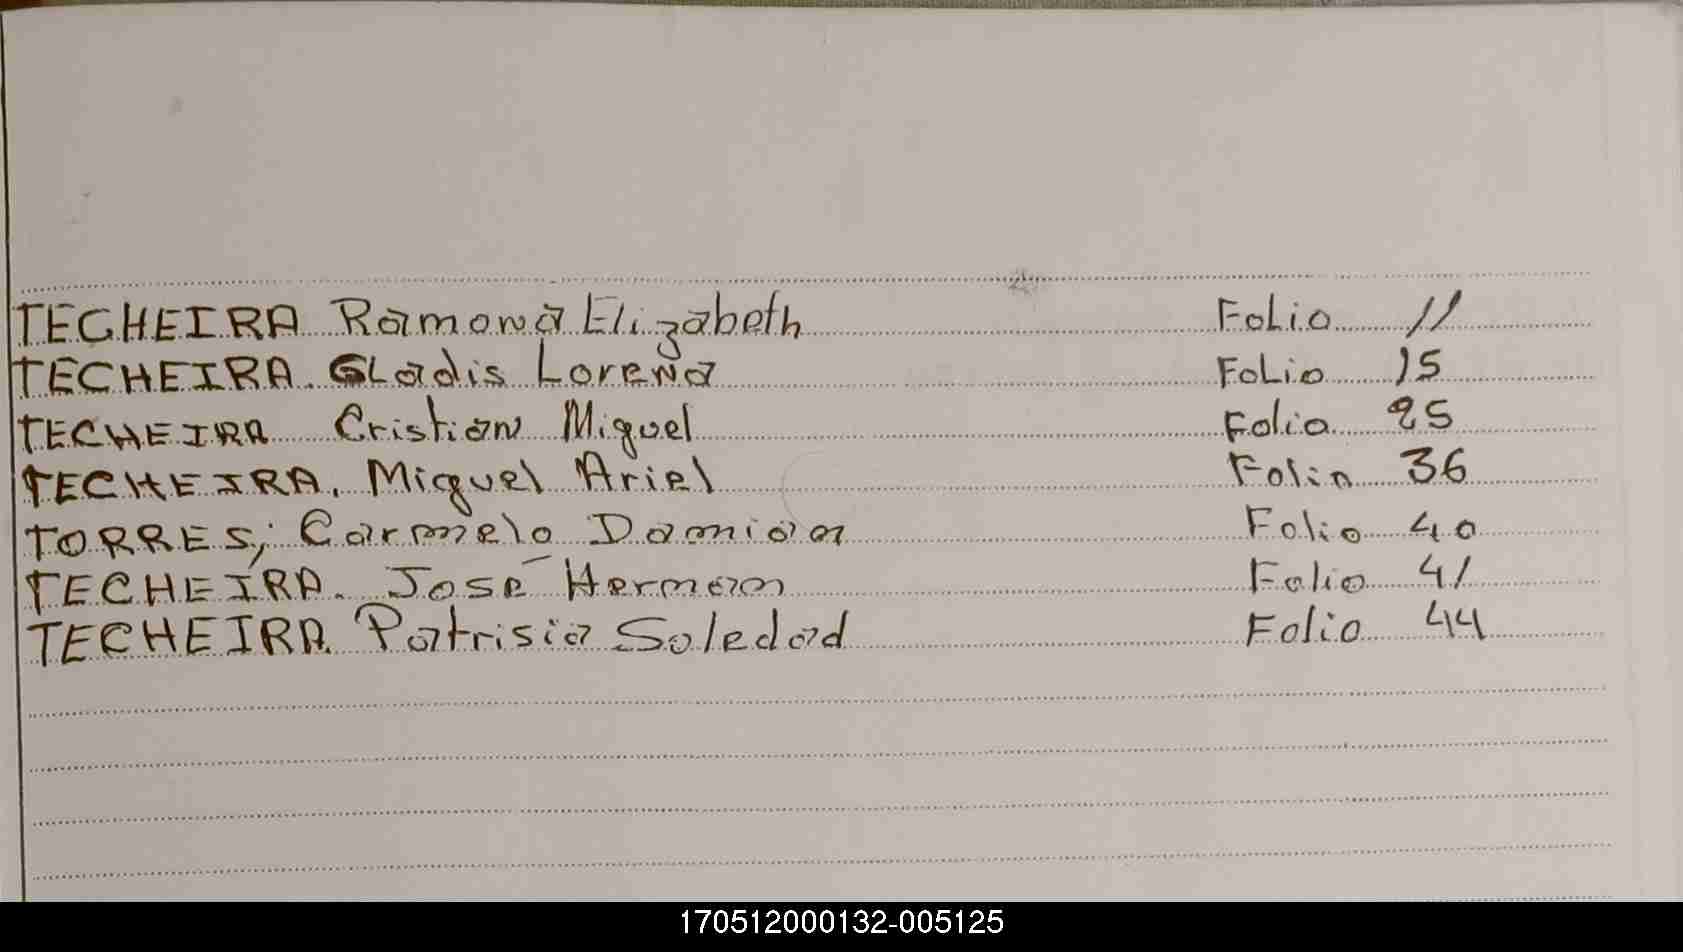 TECHEIRA Ramona Elizabeth Folio 11
TECHEIRA. Gladis Lorena Folio 15
TECHEIRA Cristian Miguel Folio 25
TECHEIRA, Miguel Ariel Folio 36
TORRES, Carmelo Damian Folio 40
TECHEIRA. José Hermam Folio 41
TECHEIRA Patrisia Soledad Folio 44
170512000132-005125